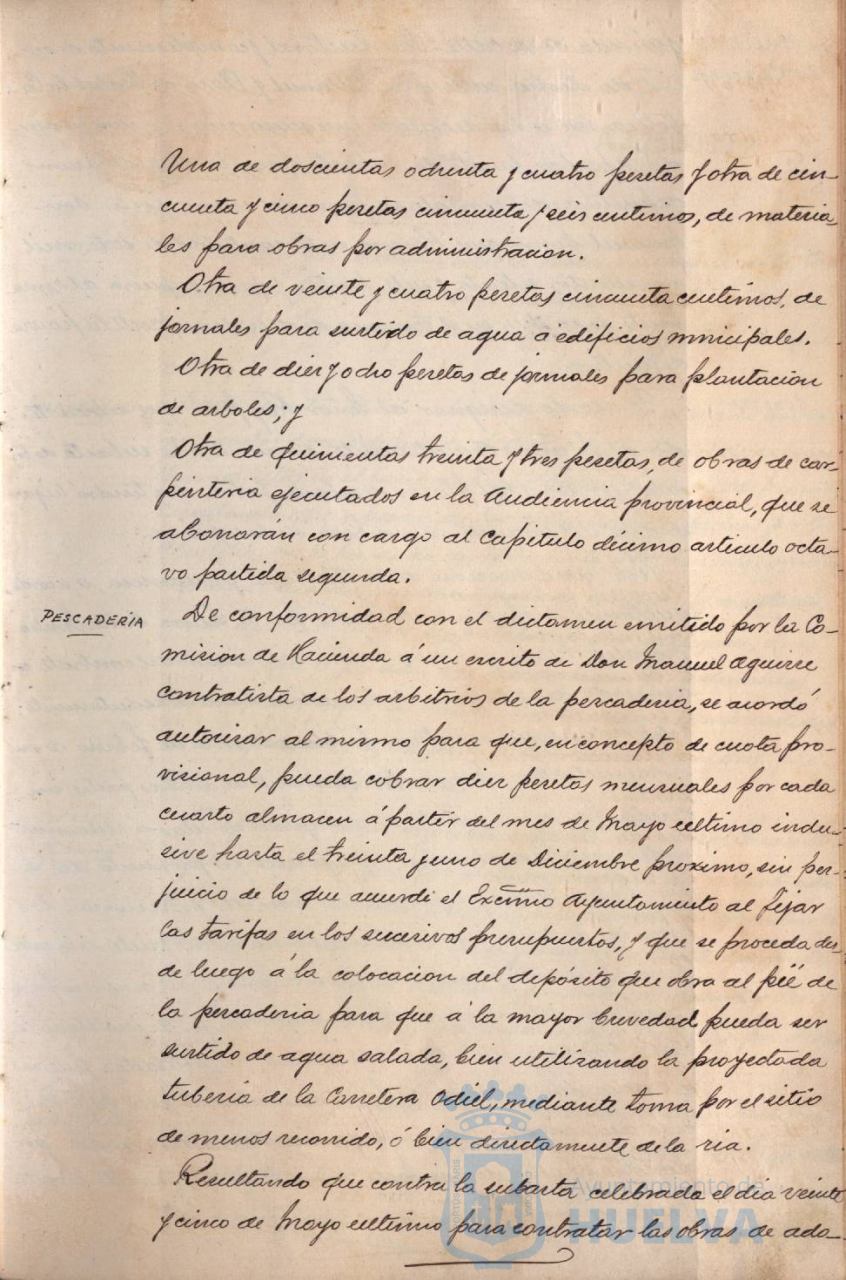 Una de doscientas ochenta y cuatro pesetas y otra de cin-
cuenta y cinco pesetas cincuenta y seis centimos, de materia-
les para obras por administracion.
Otra de veinte y cuatro pesetas cincuenta centimos, de
jornales para surtido de agua á edificios municipales.
Otra de diez y ocho pesetas de jornales para plantacion
de arboles; y
Otra de quinientas treinta y tres pesetas, de obras de car-
pinteria ejecutados en la Audiencia provincial, que se
abonarán con cargo al capitulo décimo articulo octa-
vo partida segunda.
PESCADERÍA
De conformidad con el dictamen emitido por la Co-
mision de Hacienda á un escrito de Don Manuel Aguirre
contratista de los arbitrios de la pescaderia, se acordó
autorizar al mismo para que, en concepto de cuota pro-
visional, pueda cobrar diez pesetas mensuales por cada
cuarto almacen á partir del mes de Mayo ultimo inclu-
sive hasta el treinta y uno de Diciembre proximo, sin per-
juicio de lo que acuerde el Excmo Ayuntamiento al fijar
las tarifas en los sucesivos presupuestos, y que se proceda des-
de luego á la colocacion del depósito que obra al pié de
la pescaderia para que á la mayor brevedad pueda ser
surtido de agua salada, bien utilizando la proyectada
tuberia de la Carretera Odiel, mediante toma por el sitio
de menos recorrido, ó bien directamente de la ria.
Resultando que contra la subasta celebrada el dia veinte
y cinco de Mayo ultimo para contratar las obras de ado-
Ayuntamiento de
HUELVA